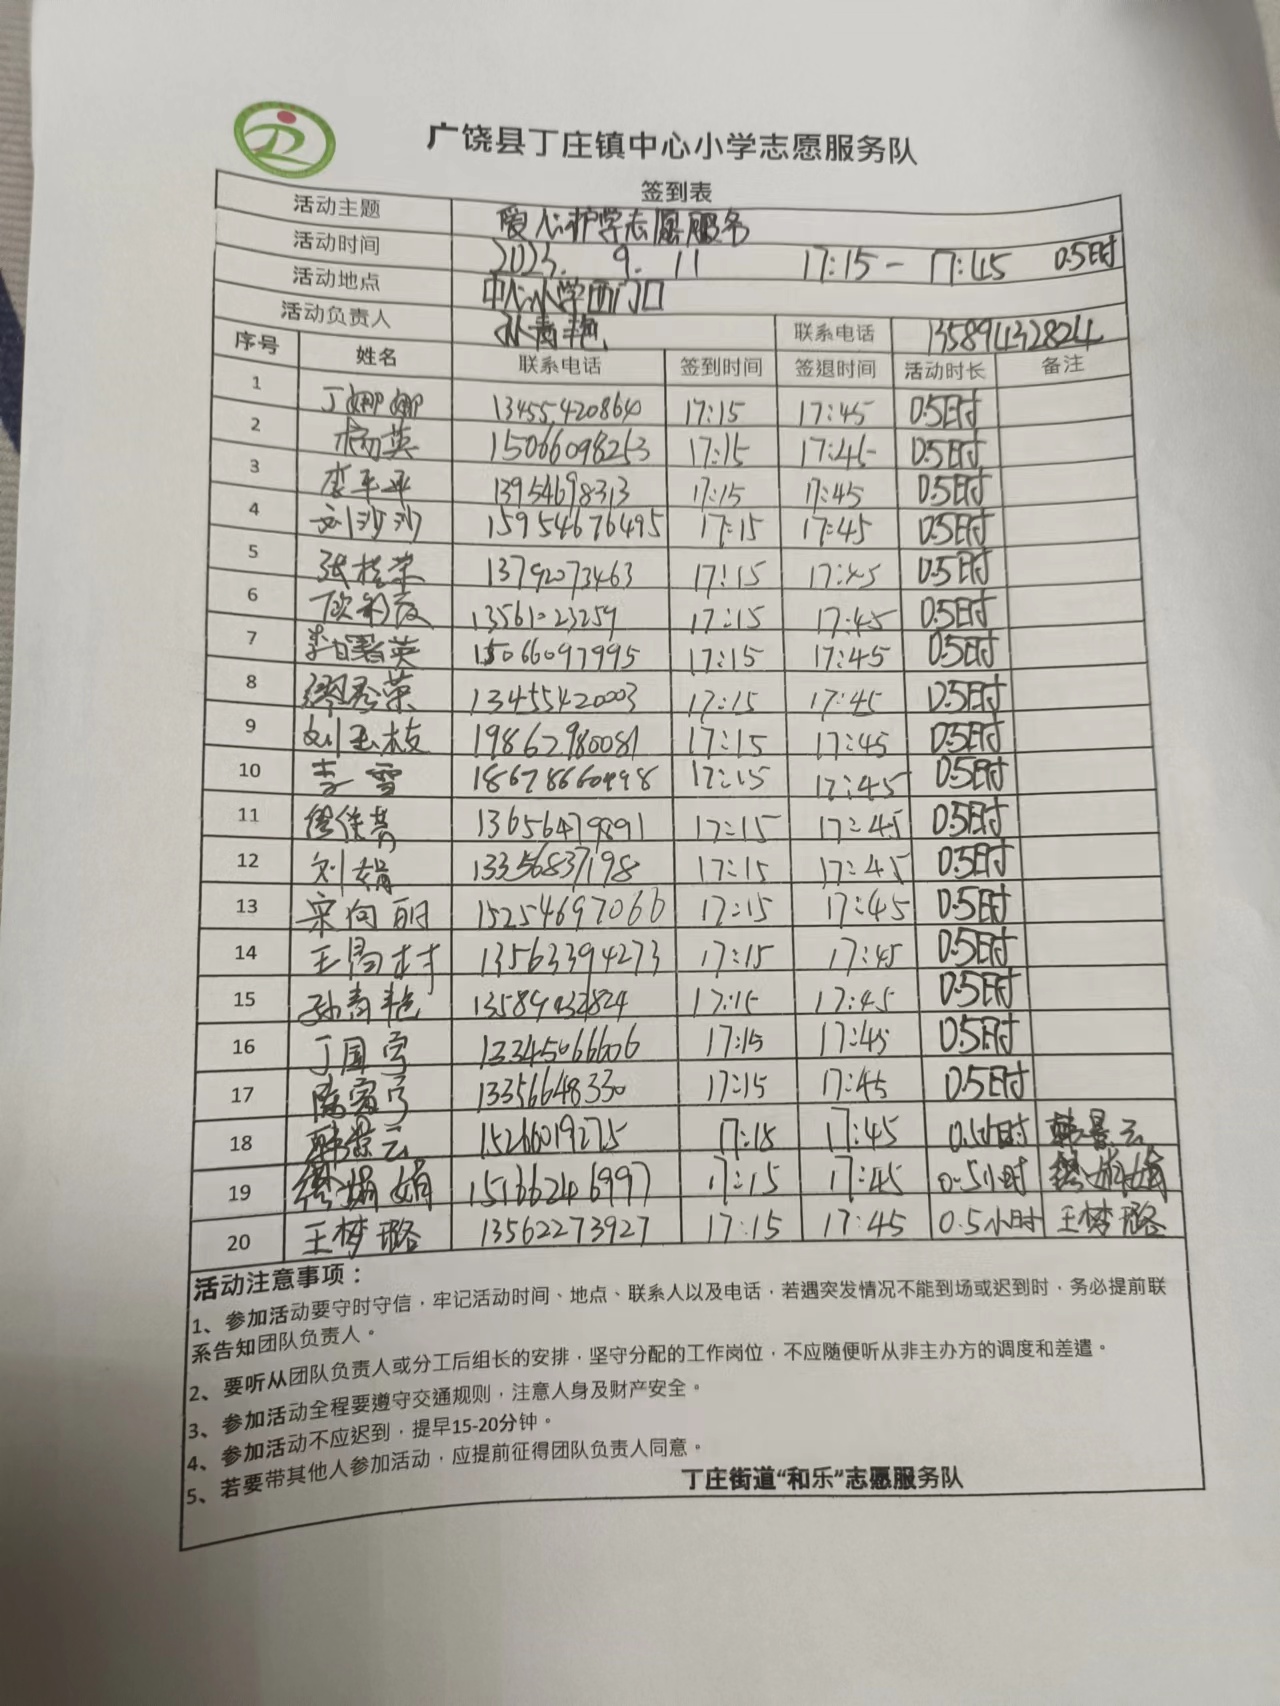 广饶县丁庄镇中心小学志愿服务队
签到表
活动主题 爱心护学志愿服务
活动时间 2023. 9. 11 17:15-17:45 0.5时
活动地点 中心小学西门口
活动负责人 孙青艳 联系电话 13589432824
序号 姓名 联系电话 签到时间 签退时间 活动时长 备注
1 丁娜娜 13455420860 17:15 17:45 0.5时
2 杨英 15066098253 17:15 17:45 0.5时
3 李平平 13954698313 17:15 17:45 0.5时
4 刘沙沙 15954676495 17:15 17:45 0.5时
5 张桂荣 13792073463 17:15 17:45 0.5时
6 17:15 17:45 0.5时
7 15066097995 17:15 17:45 0.5时
8 13455420003 17:15 17:45 0.5时
9 刘玉枝 19862980081 17:15 17:45 0.5时
10 李雪 17:15 17:45 0.5时
11 17:15 17:45 0.5时
12 刘娟 13356837198 17:15 17:45 0.5时
13 宋向丽 15254697066 17:15 17:45 0.5时
14 13563394273 17:15 17:45 0.5时
15 孙青艳 13589432824 17:15 17:45 0.5时
16 丁国 17:15 17:45 0.5时
17 13356648330 17:15 17:45 0.5时
18 韩景云 15266019275 17:15 17:45 0.5小时 韩景云
19 娟娟 15166246997 17:15 17:45 0.5小时 娟娟
20 王梦璐 13562273927 17:15 17:45 0.5小时 王梦璐
活动注意事项：
1、参加活动要守时守信，牢记活动时间、地点、联系人以及电话，若遇突发情况不能到场或迟到时，务必提前联
系告知团队负责人。
2、要听从团队负责人或分工后组长的安排，坚守分配的工作岗位，不应随便听从非主办方的调度和差遣。
3、参加活动全程要遵守交通规则，注意人身及财产安全。
4、参加活动不应迟到，提早15-20分钟。
5、若要带其他人参加活动，应提前征得团队负责人同意。
丁庄街道“和乐”志愿服务队